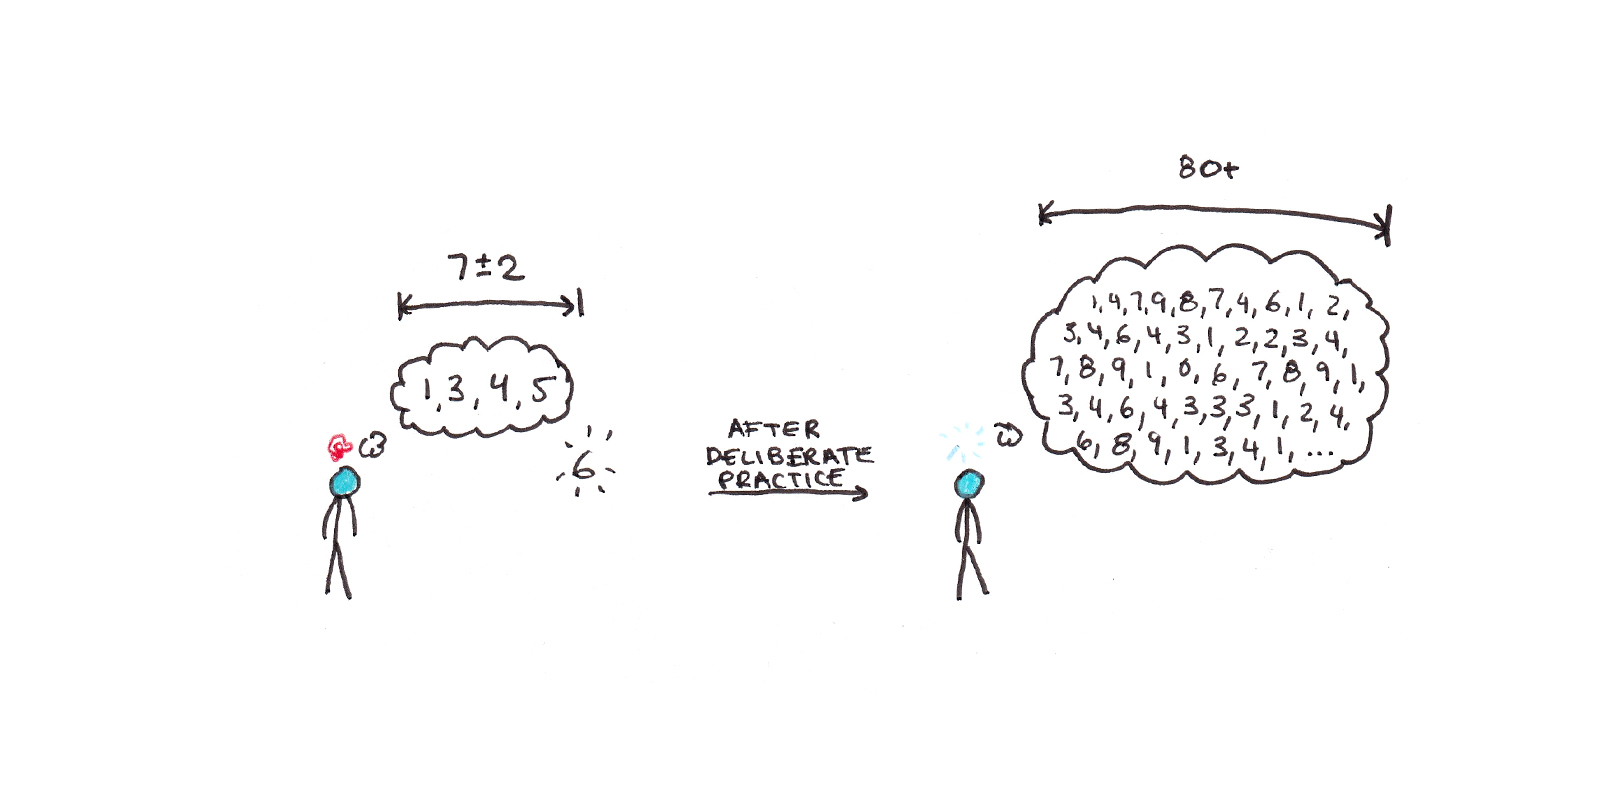 7±2
1, 3, 4, 5
6
AFTER
DELIBERATE
PRACTICE
80+
1,4,7,9,8,7,4,6,1,2,
3,4,6,4,3,1,2,2,3,4,
7,8,9,1,0,6,7,8,9,1,
3,4,6,4,3,3,3,1,2,4,
6,8,9,1,3,4,1,...